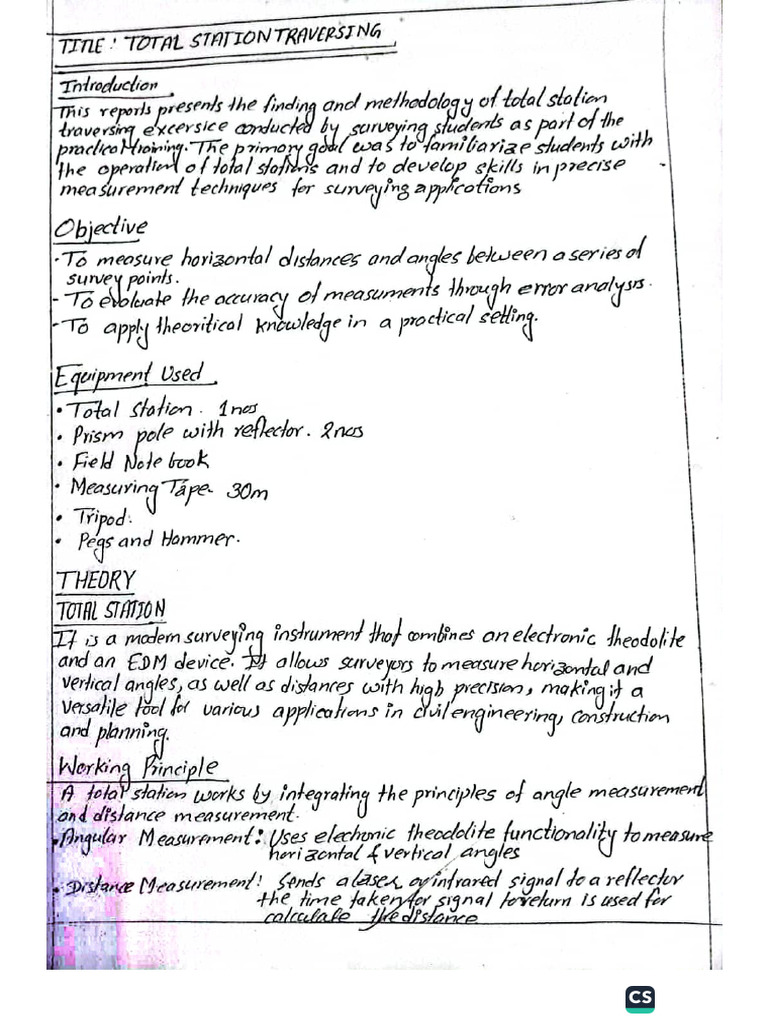 TITLE: TOTAL STATION TRAVERSING
Introduction
This reports presents the finding and methodology of total station
traversing excersice conducted by surveying students as part of the
practical training. The primary goal was to familiarize students with
the operation of total stations and to develop skills in precise
measurement techniques for surveying applications
Objective
- To measure horizontal distances and angles between a series of
survey points.
- To evaluate the accuracy of measuments through error analysis.
- To apply theoritical knowledge in a practical setting.
Equipment Used
• Total Station. 1nos
• Prism pole with reflector. 2nos
• Field Note book
• Measuring Tape. 30m
• Tripod.
• Pegs and Hammer.
THEORY
TOTAL STATION
It is a modern surveying instrument that combines an electronic theodolite
and an EDM device. It allows surveyors to measure horizontal and
vertical angles, as well as distances with high precision, making it a
versatile tool for various applications in civil engineering, construction
and planning.
Working Principle
A total station works by integrating the principles of angle measurement
and distance measurement.
• Angular Measurement: Uses elechonic theodolite functionality to measure
horizontal & vertical angles
• Distance Measurement: Sends a laser or infrared signal to a reflector
the time taken for signal to return is used for
calculate the distance
CS